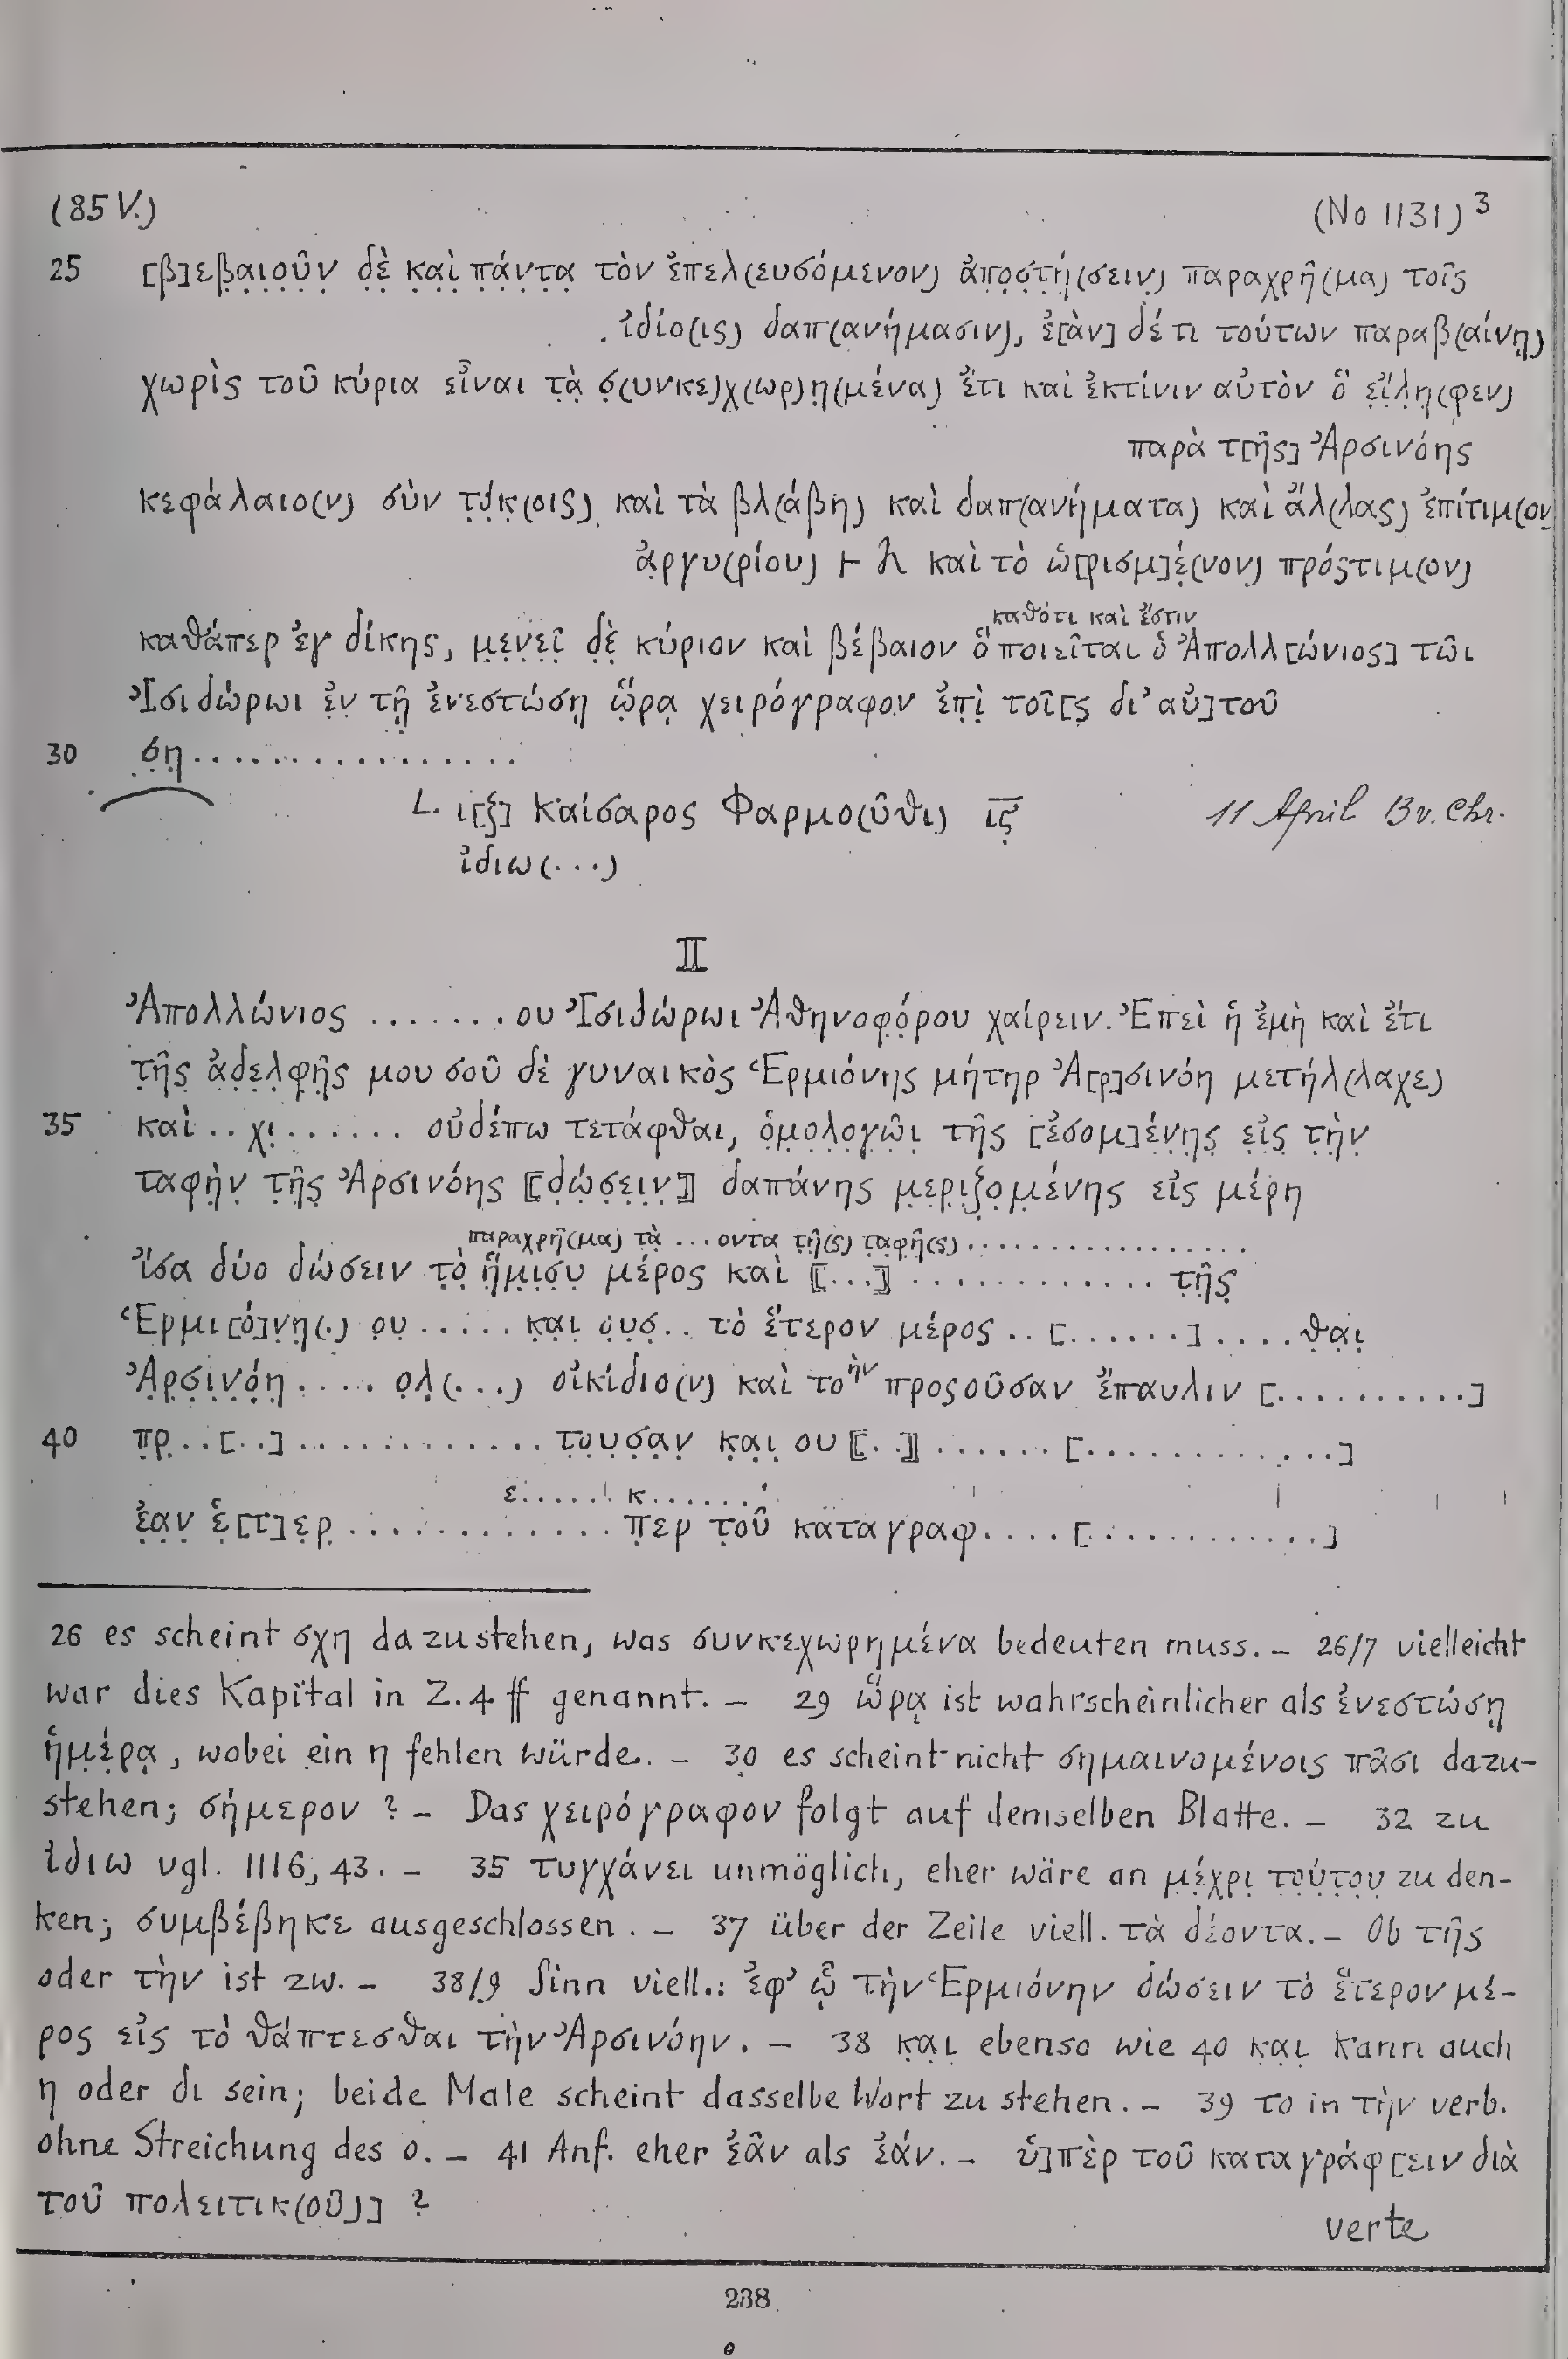 (85 V.) (No 1131) 3
25 [β]ε̣β̣α̣ι̣ο̣ῦ̣ν̣ δ̣ὲ̣ κ̣α̣ὶ̣ π̣ά̣ν̣τ̣α̣ τὸν ἐπελ(ευσόμενον) ἀπ̣ο̣σ̣τ̣ή̣(σειν) παραχρῆ(μα) τοῖς
ἰδίο(ις) δαπ(ανήμασιν), ἐ[ὰν] δέ τι τούτων παραβ(αίνῃ)
χωρὶς τοῦ κύρια εἶναι τ̣ὰ̣ σ̣(υνκε)χ(ωρ)η(μένα) ἔτι καὶ ἐκτίνιν αὐτὸν ὃ ε̣ἴ̣λ̣η̣(φεν)
παρὰ τ[ῆς] Ἀρσινόης
κεφάλαιο(ν) σὺν τ̣ό̣κ̣(οις) καὶ τὰ βλ(άβη) καὶ δαπ(ανήματα) καὶ ἄλ(λας) ἐπίτιμ(ον)
ἀ̣ργυ(ρίου) 𐅂 λ καὶ τὸ ὡ[ρισμ]έ̣(νον) πρόςτιμ(ον)
καθότι καὶ ἔστιν
καθάπερ ἐγ δίκης, μ̣ε̣ν̣ε̣ῖ̣ δ̣ὲ̣ κύριον καὶ βέβαιον ὃ ποιεῖται ὁ Ἀπολλ[ώνιος] τῶι
Ἰσιδώρωι ἐ̣ν̣ τῇ ἐνεστώσῃ ὥ̣ρᾳ χειρόγραφον ἐπ̣ὶ̣ τοῖ[ς δι’ αὐ]τοῦ
30 σ̣η̣.................
L. ι[ζ] Καίσαρος Φαρμο(ῦθι) ι̅ς̅ 11 April 13 v. Chr.
ἰδιω(...)
II
Ἀπολλώνιος .......ου Ἰσιδώρωι Ἀθηνοφ̣ό̣ρου χαίρειν. Ἐπεὶ ἡ ἐμὴ καὶ ἔτι
τ̣ῆ̣ς̣ ἀ̣δ̣ε̣λ̣φ̣ῆ̣ς̣ μου σοῦ δὲ γυναικὸς Ἑρμιόνης μήτηρ Ἀ[ρ]σινόη μετήλ(λαχε)
35 καὶ..χι̣....... οὐδέπω τετάφθαι, ὁ̣μ̣ο̣λ̣ο̣γ̣ῶ̣ι̣ τῆς [ἐσομ]έ̣ν̣η̣ς̣ ε̣ἰ̣ς̣ τ̣ὴ̣ν̣
ταφὴ̣ν̣ τ̣ῆ̣ς̣ Ἀρσινόης ⟦δ̣ώ̣σ̣ε̣ι̣ν̣⟧ δαπάνης μ̣ε̣ρ̣ι̣ζ̣ο̣μ̣ένης εἰς μέρη
παραχρῆ(μα) τ̣ὰ̣ ...οντα τ̣ῆ̣(ς) τ̣α̣φ̣ῆ̣(ς)..................
ἴσα δύο δώσειν τ̣ὸ̣ ἥ̣μ̣ι̣σ̣υ̣ μέρος καὶ ⟦...⟧ ............. τ̣ῆ̣ς̣
Ἑρμι[ό]νη(.) ο̣υ̣..... κ̣α̣ι̣ ο̣υ̣σ̣.. τὸ ἕτερον μέρος ..[.......]....θ̣α̣ι̣
Ἀ̣ρ̣σ̣ι̣ν̣ό̣η̣.... ο̣λ̣(...) οἰκίδιο(ν) καὶ το ὴν προςοῦσαν ἔπαυλιν [..........]
40 π̣ρ̣..[..]............. τ̣ο̣υ̣σ̣α̣ν̣ κ̣α̣ι̣ ου⟦..⟧......[.............]
ε......κ.......
ἐ̣α̣ν̣ ἑ̣[τ]ε̣ρ̣............. π̣ερ τ̣οῦ καταγραφ....[...........]
26 es scheint σχη dazustehen, was συνκεχωρημένα bedeuten muss. – 26/7 vielleicht
war dies Kapital in Z. 4 ff genannt. – 29 ὥρᾳ ist wahrscheinlicher als ἐνεστώσῃ
ἡμ̣έ̣ρᾳ, wobei ein η fehlen würde. – 30 es scheint nicht σημαινομένοις πᾶσι dazu-
stehen; σήμερον ? – Das χειρόγραφον folgt auf demselben Blatte. – 32 zu
ἰδιω vgl. 1116, 43. – 35 τυγχάνει unmöglich, eher wäre an μ̣έ̣χ̣ρ̣ι̣ τ̣ο̣ύ̣τ̣ο̣υ̣ zu den-
ken; συμβέβηκε ausgeschlossen. – 37 über der Zeile viell. τὰ δέοντα. – Ob τῆς
oder τὴν ist zw. – 38/9 Sinn viell.: ἐφ’ ᾧ τὴν Ἑρμιόνην δώσειν τὸ ἕτερον μέ-
ρος εἰς τὸ θάπτεσθαι τὴν Ἀρσινόην. – 38 κ̣α̣ι̣ ebenso wie 40 κ̣α̣ι̣ kann auch
η oder δι sein; beide Male scheint dasselbe Wort zu stehen. – 39 το in τὴν verb.
ohne Streichung des ο. – 41 Anf. eher ἐᾶν als ἐάν. – ὑ]πὲρ τοῦ καταγράφ[ειν διὰ
τοῦ πολειτικ(οῦ)] ?
verte
238